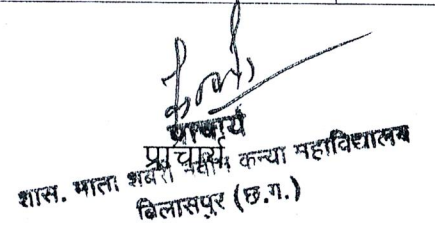 प्राचार्य
प्राचार्य
शास. माता शबरी नवीन कन्या महाविद्यालय
बिलासपुर (छ.ग.)